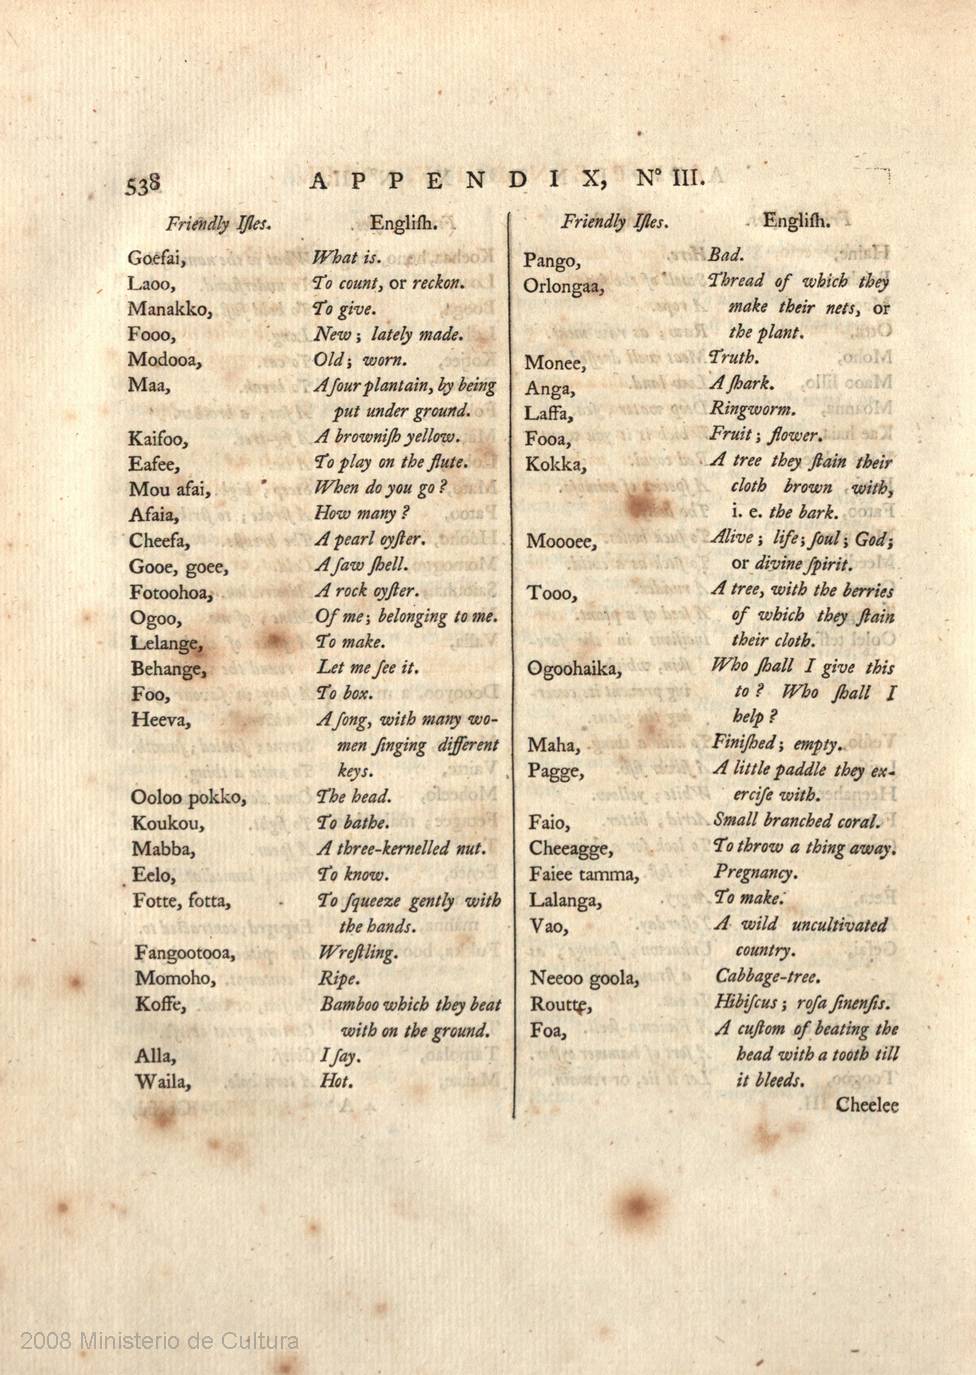 538 APPENDIX, Nº III.
Friendly Iſles. Engliſh.
Goefai, What is.
Laoo, To count, or reckon.
Manakko, To give.
Fooo, New; lately made.
Modooa, Old; worn.
Maa, A ſour plantain, by being
put under ground.
Kaifoo, A browniſh yellow.
Eafee, To play on the flute.
Mou afai, When do you go?
Afaia, How many?
Cheefa, A pearl oyſter.
Gooe, goee, A ſaw ſhell.
Fotoohoa, A rock oyſter.
Ogoo, Of me; belonging to me.
Lelange, To make.
Behange, Let me ſee it.
Foo, To box.
Heeva, A ſong, with many wo-
men ſinging different
keys.
Ooloo pokko, The head.
Koukou, To bathe.
Mabba, A three-kernelled nut.
Eelo, To know.
Fotte, fotta, To ſqueeze gently with
the hands.
Fangootooa, Wreſtling.
Momoho, Ripe.
Koffe, Bamboo which they beat
with on the ground.
Alla, I ſay.
Waila, Hot.
Friendly Iſles. Engliſh.
Pango, Bad.
Orlongaa, Thread of which they
make their nets, or
the plant.
Monee, Truth.
Anga, A ſhark.
Laffa, Ringworm.
Fooa, Fruit; flower.
Kokka, A tree they ſtain their
cloth brown with,
i. e. the bark.
Moooee, Alive; life; ſoul; God;
or divine ſpirit.
Tooo, A tree, with the berries
of which they ſtain
their cloth.
Ogoohaika, Who ſhall I give this
to? Who ſhall I
help?
Maha, Finiſhed; empty.
Pagge, A little paddle they ex-
erciſe with.
Faio, Small branched coral.
Cheeagge, To throw a thing away.
Faiee tamma, Pregnancy.
Lalanga, To make.
Vao, A wild uncultivated
country.
Neeoo goola, Cabbage-tree.
Routte, Hibiſcus; roſa ſinenſis.
Foa, A cuſtom of beating the
head with a tooth till
it bleeds.
Cheelee
2008 Ministerio de Cultura